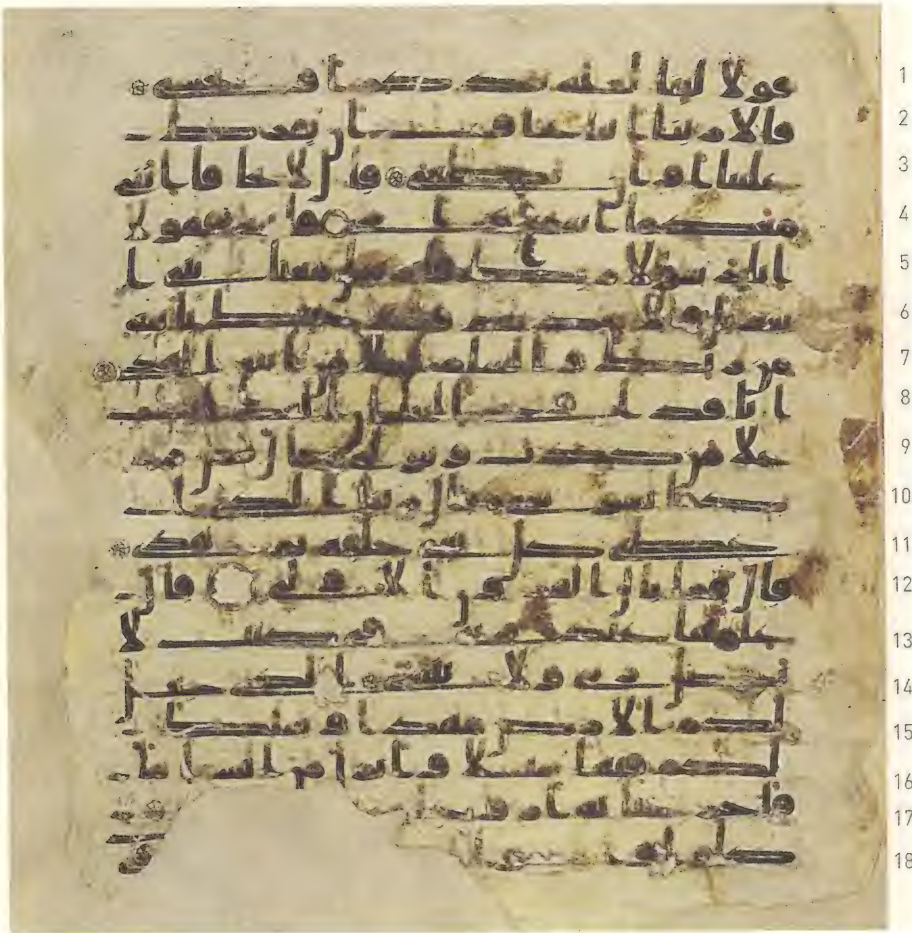 1 قولا لينا لعله يتذكر او يخشى
2 قالا ربنا اننا نخاف ان يفرط
3 علينا او ان يطغى قال لا تخافا اننى
4 معكما اسمع وارى فاتياه فقولا
5 انا رسولا ربك فارسل معنا بنى ا
6 سريل ولا تعذبهم قد جينك باية
7 من ربك والسلم على من اتبع الهدى
8 انا قد اوحى الينا ان العذاب
9 على من كذب وتولى قال فمن ر
10 بكما يموسى قال ربنا الذى ا
11 عطى كل شى خلقه ثم هدى
12 قال فما بال القرون الاولى قال
13 علمها عند ربى فى كتب لا
14 يضل ربى ولا ينسى الذى جعل
15 لكم الارض مهدا وسلك
16 لكم فيها سبلا وانزل من السما ما
17 فاخرجنا به ازوجا
18 كلوا وارعوا